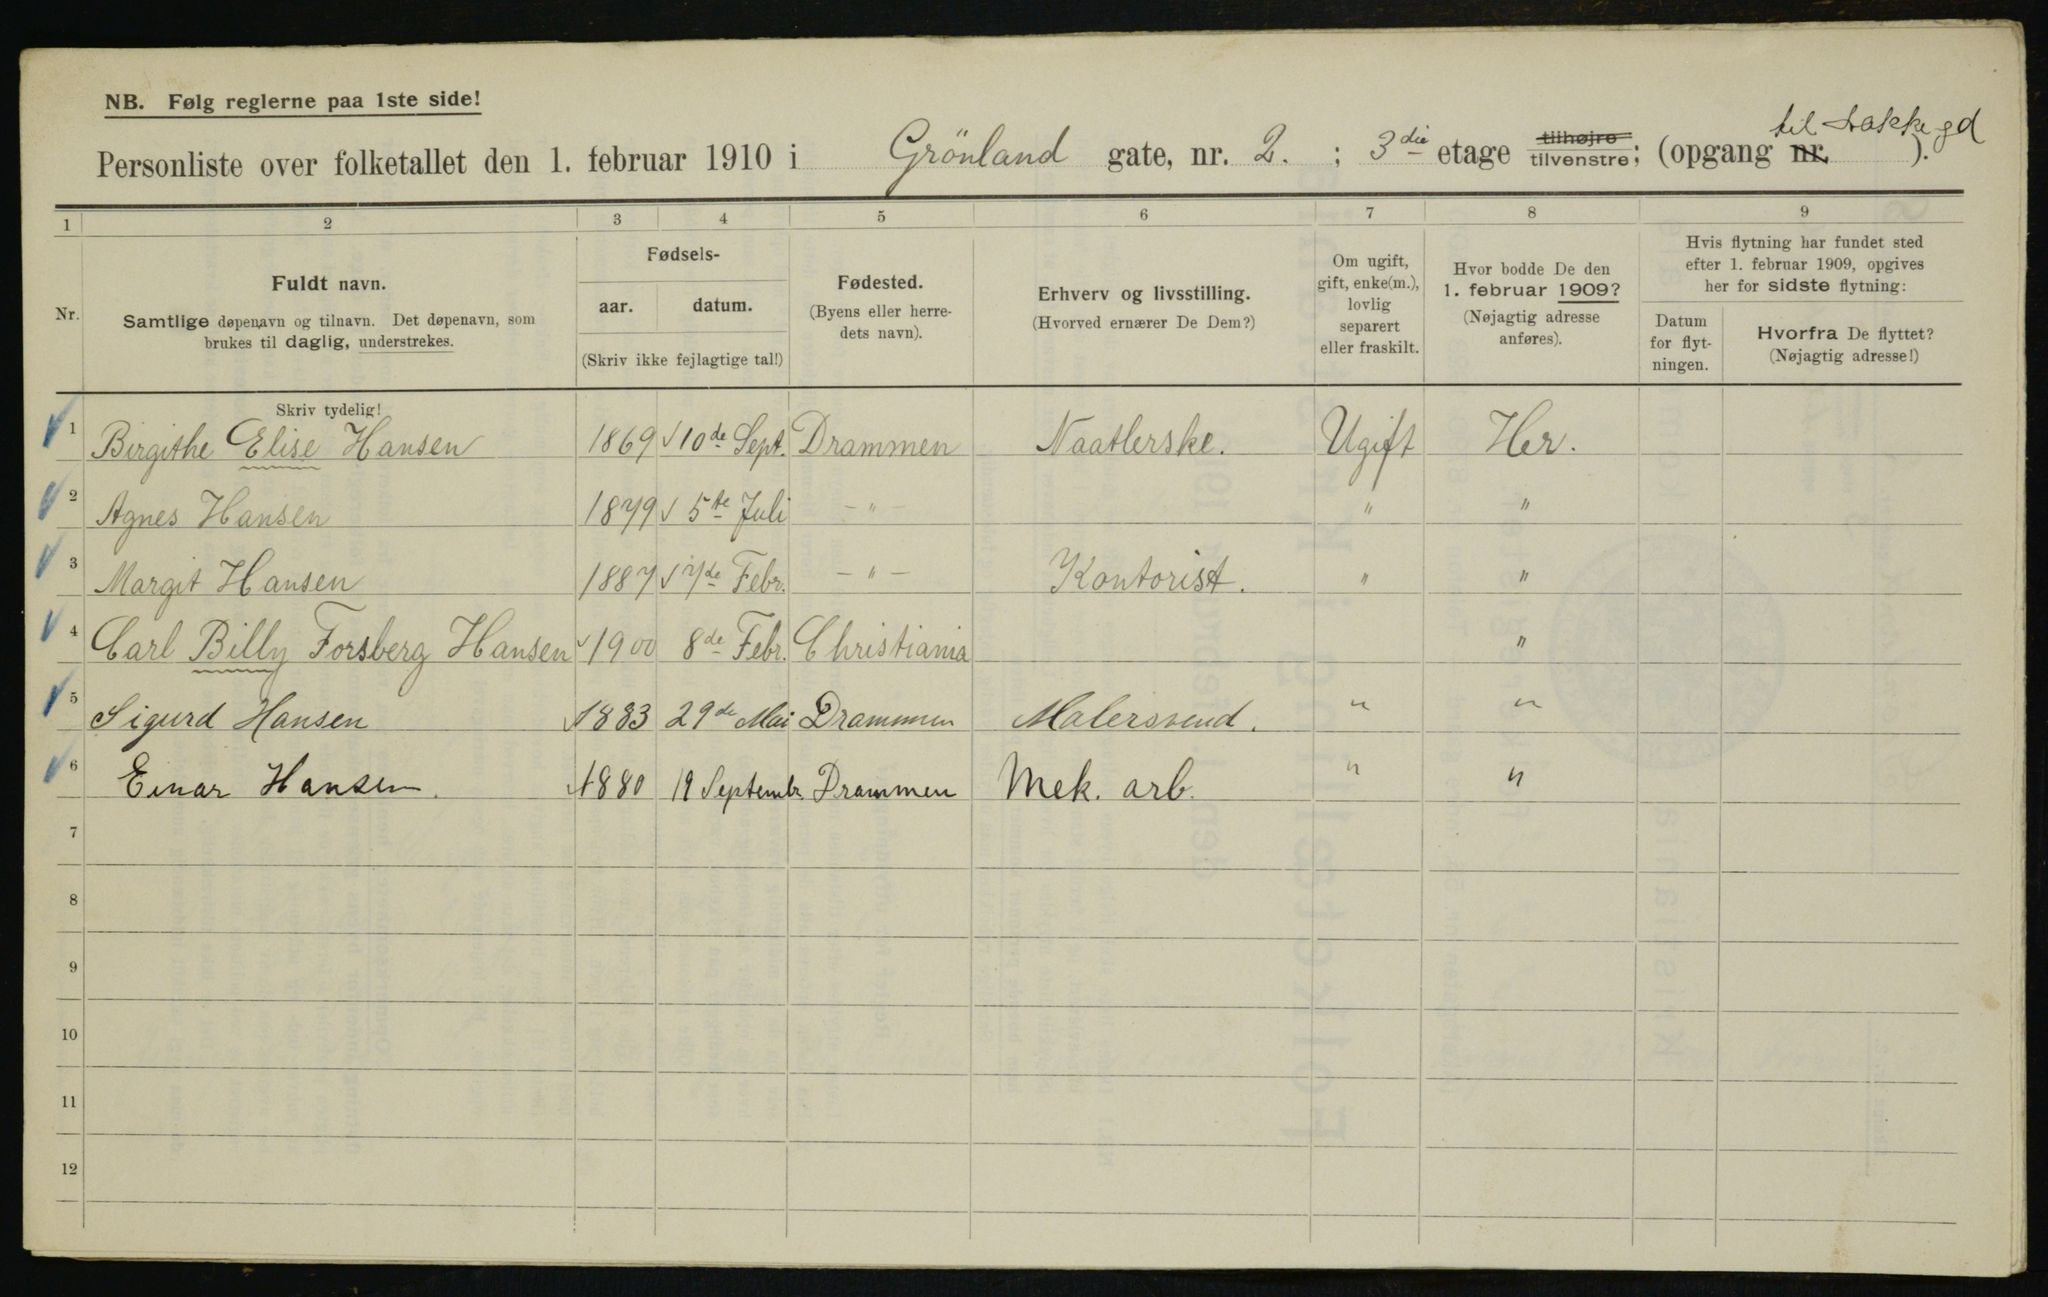 NB. Følg reglerne paa 1ste side!
til bakkegd
Personliste over folketallet den 1. februar 1910 i Grönland gate, nr. 2. ; 3die etage tilhøjre tilvenstre; (opgang nr. ).
1 2 3 4 5 6 7 8 9
Nr.
Fuldt navn.
Samtlige døpenavn og tilnavn. Det døpenavn, som
brukes til daglig, understrekes.
Fødsels-
aar. datum.
(Skriv ikke fejlagtige tal!)
Fødested.
(Byens eller herre-
dets navn).
Erhverv og livsstilling.
(Hvorved ernærer De Dem?)
Om ugift,
gift, enke(m.),
lovlig
separert
eller fraskilt.
Hvor bodde De den
1. februar 1909?
(Nøjagtig adresse
anføres).
Hvis flytning har fundet sted
efter 1. februar 1909, opgives
her for sidste flytning:
Datum
for flyt-
ningen.
Hvorfra De flyttet?
(Nøjagtig adresse!)
Skriv tydelig!
1 Birgithe Elise Hansen 1869 10de Sept. Drammen Naatlerske. Ugift Her.
2 Agnes Hansen 1879 5te Juli — " — " "
3 Margit Hansen 1887 7de Febr. — " — Kontorist. " "
4 Carl Billy Forsberg Hansen 1900 8de Febr. Christiania "
5 Sigurd Hansen 1883 29de Mai Drammen Malersvend. " "
6 Einar Hansen. 1880 19 Septembr. Drammen Mek. arb. " "
7
8
9
10
11
12